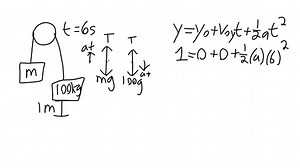 t=6s
m
100kg
1m
a↑
T
mg
T
100g
a↓
y=y₀+v₀yt+½at²
1=0+0+½(a)(6)²